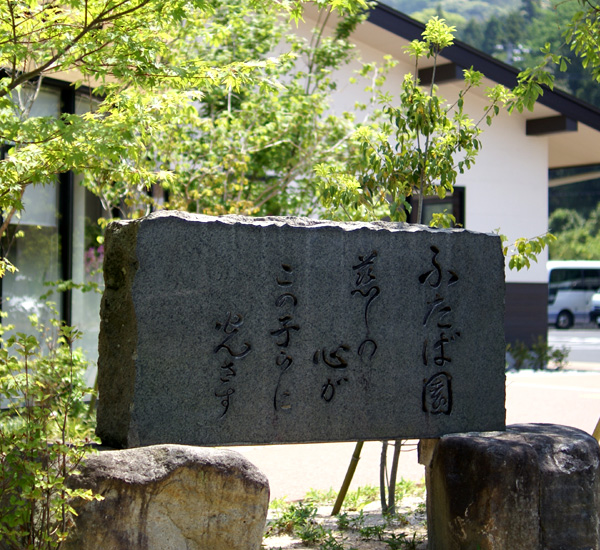 ふたば園
慈しの
心が
この子らに
光さす